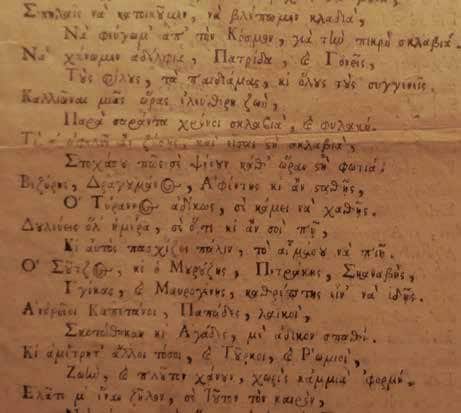 Σπηλαῖς νὰ κατοικȣ̃μεν, νὰ βλέπωμεν κλαδιά,
Νὰ φεύγωμ' ἀπ' τὸν Κόσμον, γιὰ τὴν πικρὴ σκλαβιά.
Νὰ χάνωμεν ἀδέλφια, Πατρίδα, & Γονεῖς,
Τȣ̀ς φίλȣς, τὰ παιδιάμας, κι ὅλȣς τȣ̀ς συγγενεῖς.
Καλλιῶναι μιᾶς ὥρας ἐλεύθερη ζωὴ,
Παρὰ σαράντα χρόνοι σκλαβιὰ, & φυλακή.
Τί σ' ὠφελεῖ ἂν ζήσῃς, καὶ εἶσαι στὴ σκλαβιά,
Στοχάσȣ πῶς σὲ ψένȣν καθ' ὥραν στὴ φωτιά.
Βεζύρης, Δραγȣμάνος, Ἀφέντης κι ἂν σταθῇς,
Ὁ Τύραννος ἀδίκως, σὲ κάμει νὰ χαθῇς.
Δȣλεύεις ὅλ' ἡμέρα, σὲ ὅ,τι κι ἂν σοὶ πῇ,
Κι αὐτὸς πασχίζει πάλιν, τὸ αἷμάσȣ νὰ πιῇ.
Ὁ Σȣ̃τζος, κι ὁ Μȣρȣ́ζης, Πετράκης, Σκαναβῆς,
Γγίκας, & Μαυρογένης, καθρέπτης εἶν' νὰ ἰδῇς.
Ἀνδρεῖοι Καπετάνοι, Παπάδες, λαϊκοὶ,
Σκοτώθηκαν κι Ἀγάδες, μὲ ἄδικον σπαθί.
Κι ἀμέτρητ' ἄλλοι τόσοι, & Τȣ̃ρκοι, & Ῥωμιοὶ,
Ζωὴν, & πλοῦτον χάνȣν, χωρὶς κάμμιὰ 'φορμή.
Ἐλᾶτε μ' ἕναν ζῆλον, σὲ τȣ̃τον τὸν καιρὸν,